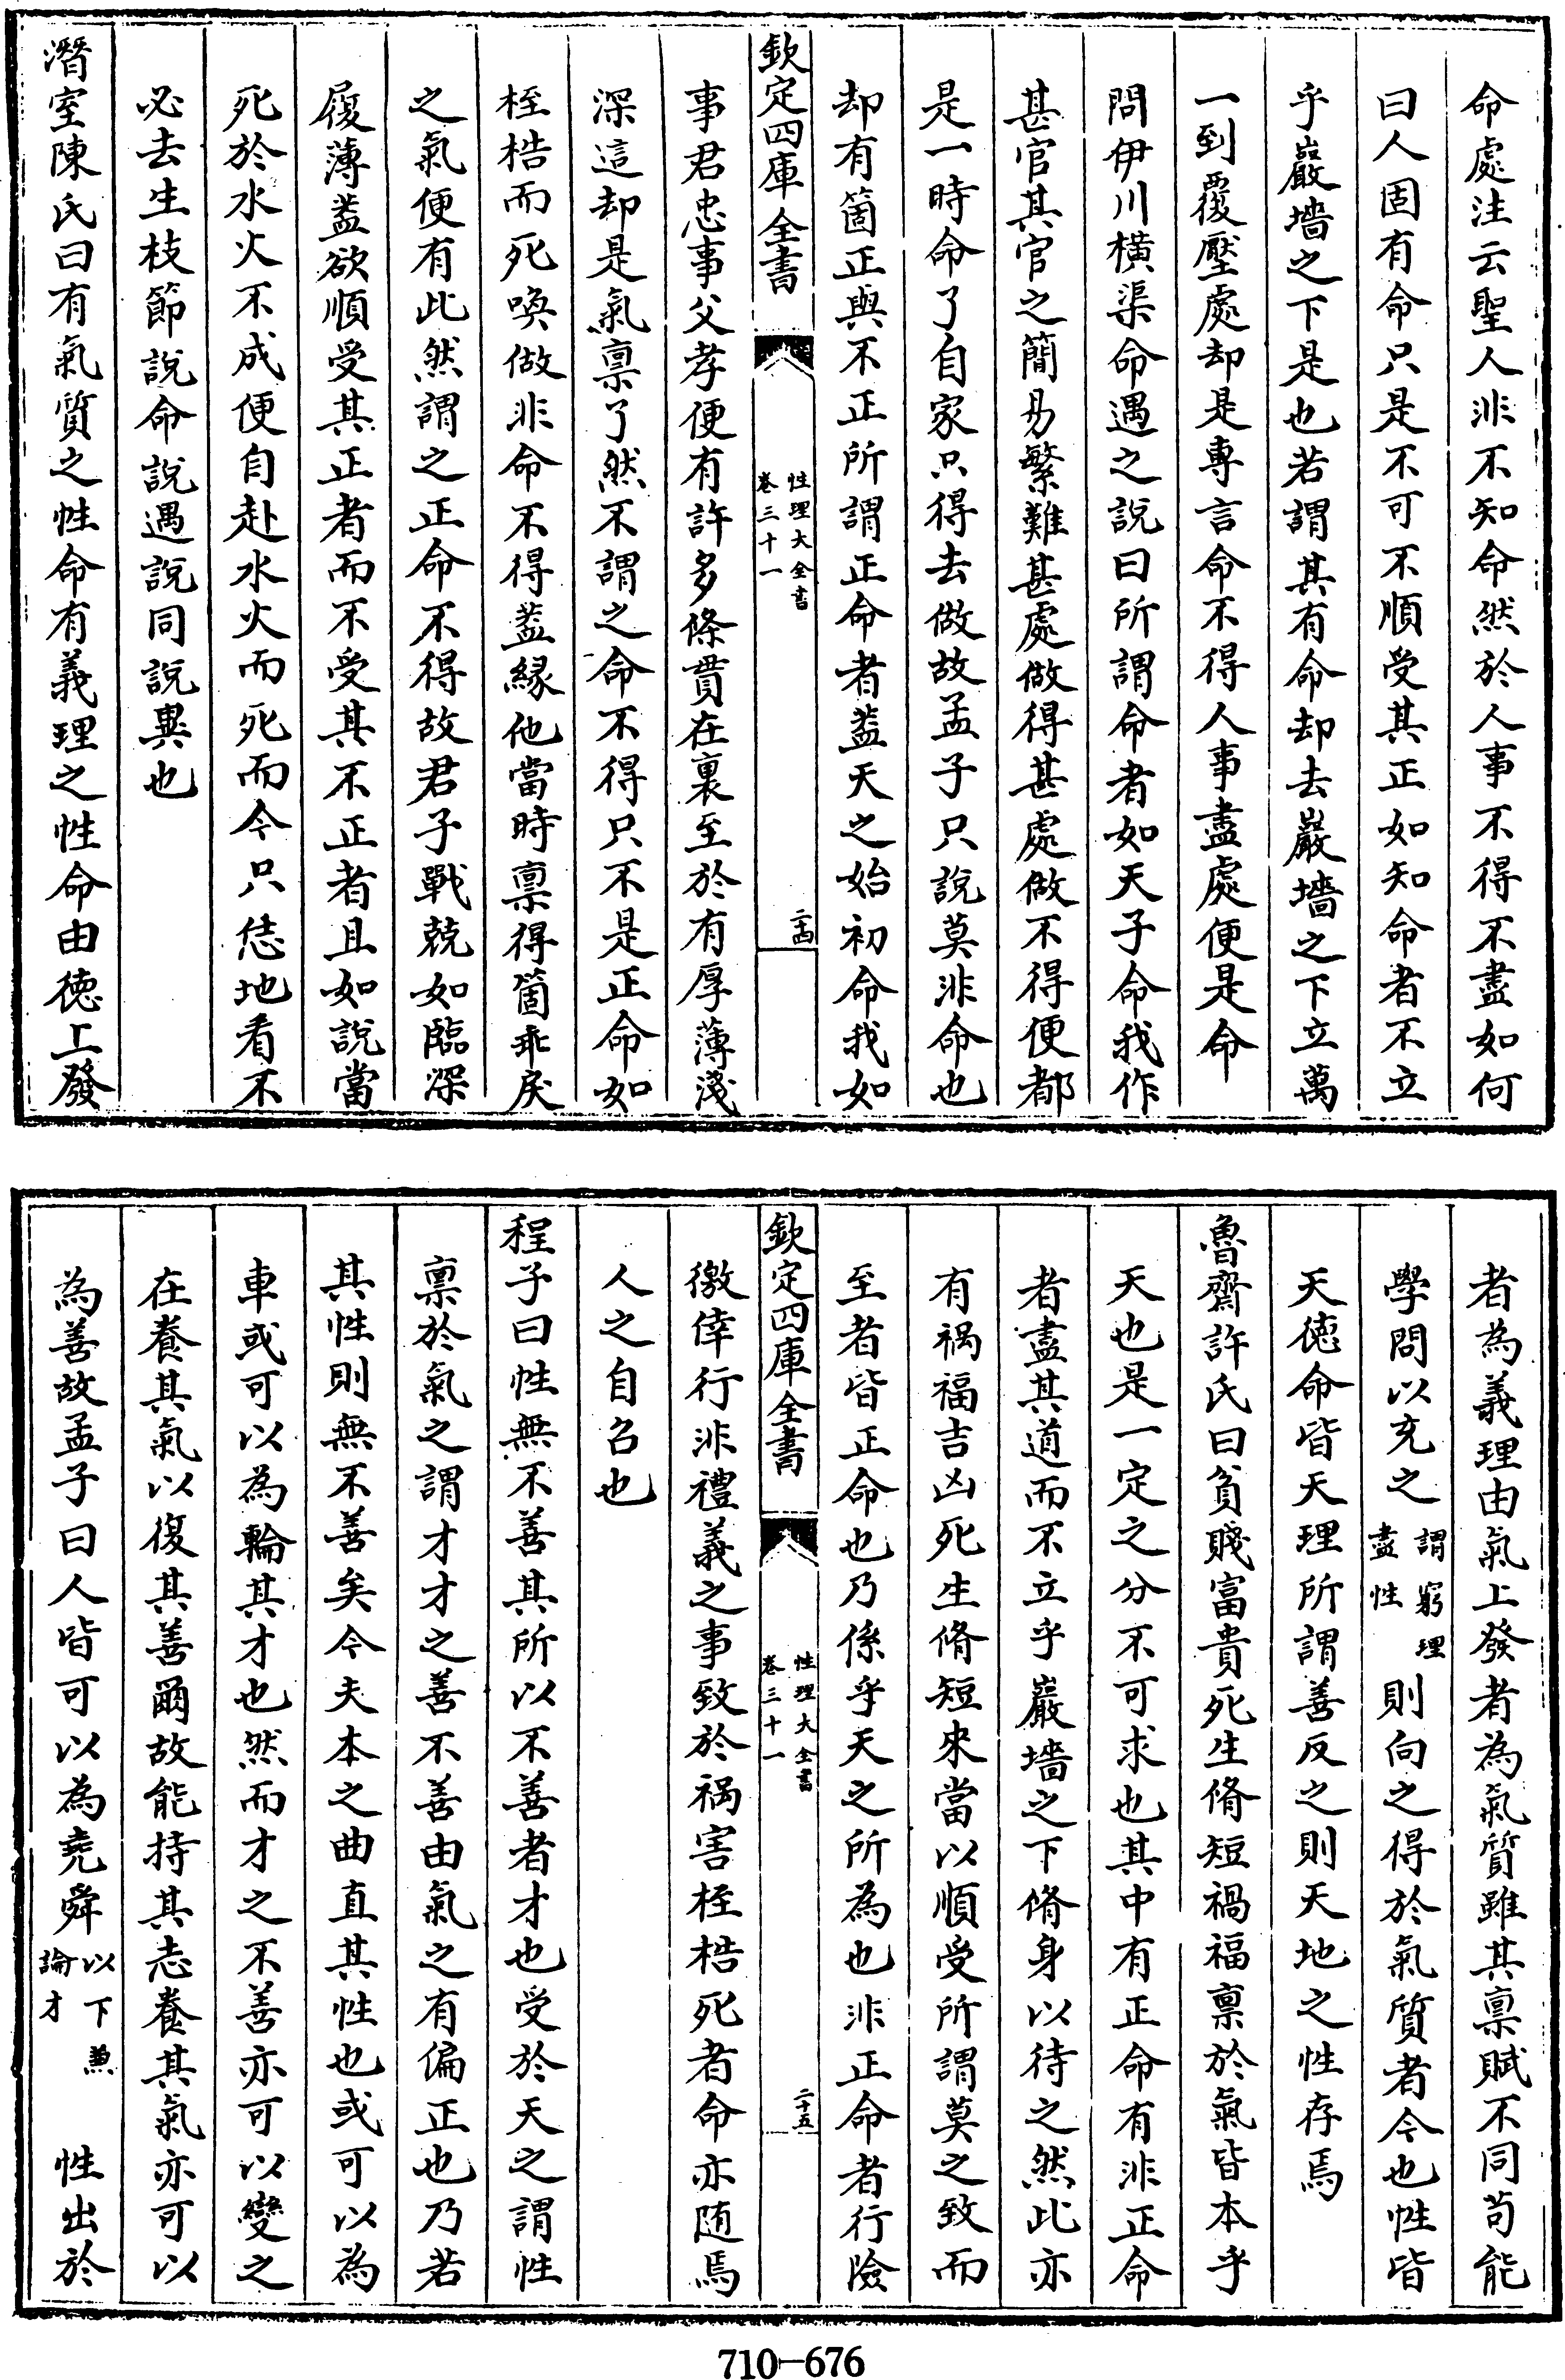 命處注云聖人非不知命然於人事不得不盡如何
曰人固有命只是不可不順受其正如知命者不立
乎巖墻之下是也若謂其有命却去巖墻之下立萬
一到覆壓處却是專言命不得人事盡處便是命
問伊川橫渠命遇之說曰所謂命者如天子命我作
甚官其官之簡易繁難甚處做得甚處做不得便都
是一時命了自家只得去做故孟子只說莫非命也
却有箇正與不正所謂正命者葢天之始初命我如
欽定四庫全書
性理大全書
卷三十一
二十四
事君忠事父孝便有許多條貫在裏至於有厚薄淺
深這却是氣禀了然不謂之命不得只不是正命如
桎梏而死喚做非命不得葢緣他當時禀得箇乖戾
之氣便有此然謂之正命不得故君子戰兢如臨深
履薄葢欲順受其正者而不受其不正者且如說當
死於水火不成便自赴水火而死而今只恁地看不
必去生枝節說命說遇說同說異也
潛室陳氏曰有氣質之性命有義理之性命由德上發
者為義理由氣上發者為氣質雖其禀賦不同苟能
學問以充之謂窮理盡性則向之得於氣質者今也性皆
天德命皆天理所謂善反之則天地之性存焉
魯齋許氏曰貧賤富貴死生脩短禍福禀於氣皆本乎
天也是一定之分不可求也其中有正命有非正命
者盡其道而不立乎巖墻之下脩身以待之然此亦
有禍福吉凶死生脩短來當以順受所謂莫之致而
至者皆正命也乃係乎天之所為也非正命者行險
欽定四庫全書
性理大全書
卷三十一
二十五
徼倖行非禮義之事致於禍害桎梏死者命亦随焉
人之自召也
程子曰性無不善其所以不善者才也受於天之謂性
禀於氣之謂才才之善不善由氣之有偏正也乃若
其性則無不善矣今夫木之曲直其性也或可以為
車或可以為輪其才也然而才之不善亦可以變之
在養其氣以復其善爾故能持其志養其氣亦可以
為善故孟子曰人皆可以為堯舜以下兼論才 性出於
710-676